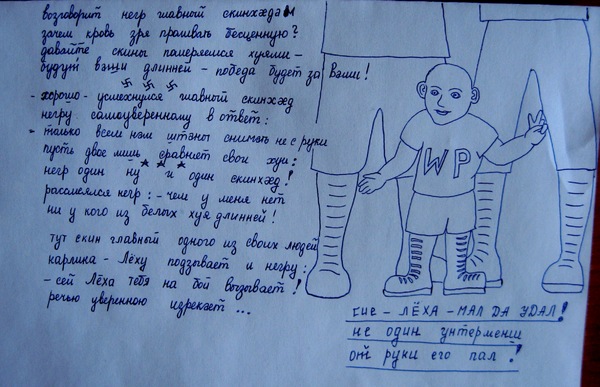 возговорит негр главный скинхэдам
зачем кровь зря проливать бесценную?
давайте скины померяемся хуями –
будут ваши длинней – победа будет за Вами!
- хорошо - усмехнулся главный скинхэд
негру самоуверенному в ответ:
- только всем нам штаны снимать не с руки
пусть двое лишь сравнят свои хуи:
негр один ну и один скинхэд!
рассмеялся негр: - чем у меня нет
ни у кого из белых хуя длинней!
тут скин главный одного из своих людей
карлика - Лёху подзывает и негру:
- сей Лёха тебя на бой вызывает!
речью уверенною изрекает ...
WP
сие - ЛЁХА - МАЛ ДА УДАЛ!
не один унтерменш
от руки его пал!